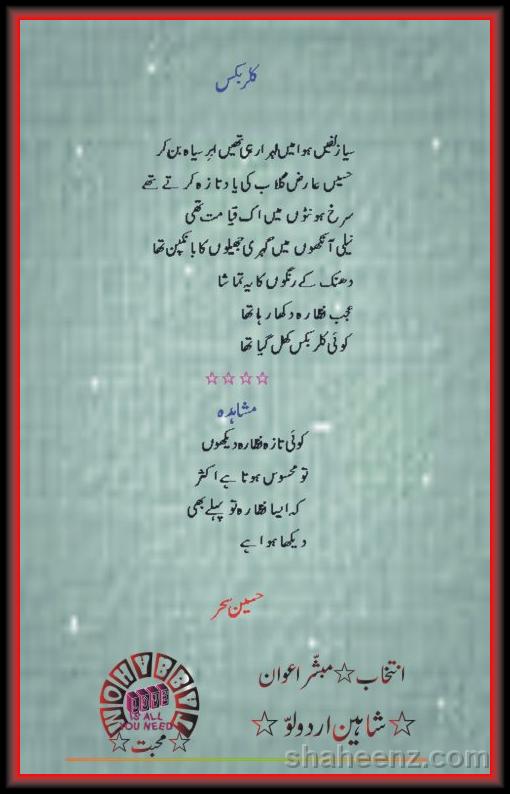 کلر بکس
سیا زلفیں ہوا میں لہرا رہی تھیں ابرِ سیاہ بن کر
حسیں عارض گلاب کی یاد تازہ کرتے تھے
سرخ ہونٹوں میں اک قیامت تھی
نیلی آنکھوں میں گہری جھیلوں کا بانکپن تھا
دھنک کے رنگوں کا یہ تماشا
عجب نظارہ دکھا رہا تھا
کوئی کلر بکس کھل گیا تھا
☆☆☆☆
مشاہدہ
کوئی تازہ نظارہ دیکھوں
تو محسوس ہوتا ہے اکثر
کہ ایسا نظارہ تو پہلے بھی
دیکھا ہوا ہے
حسین سحر
انتخاب☆مبشّر اعوان
☆شاہین اردو لوّ☆
IS ALL
YOU NEED
☆محبت☆
shaheenz.com